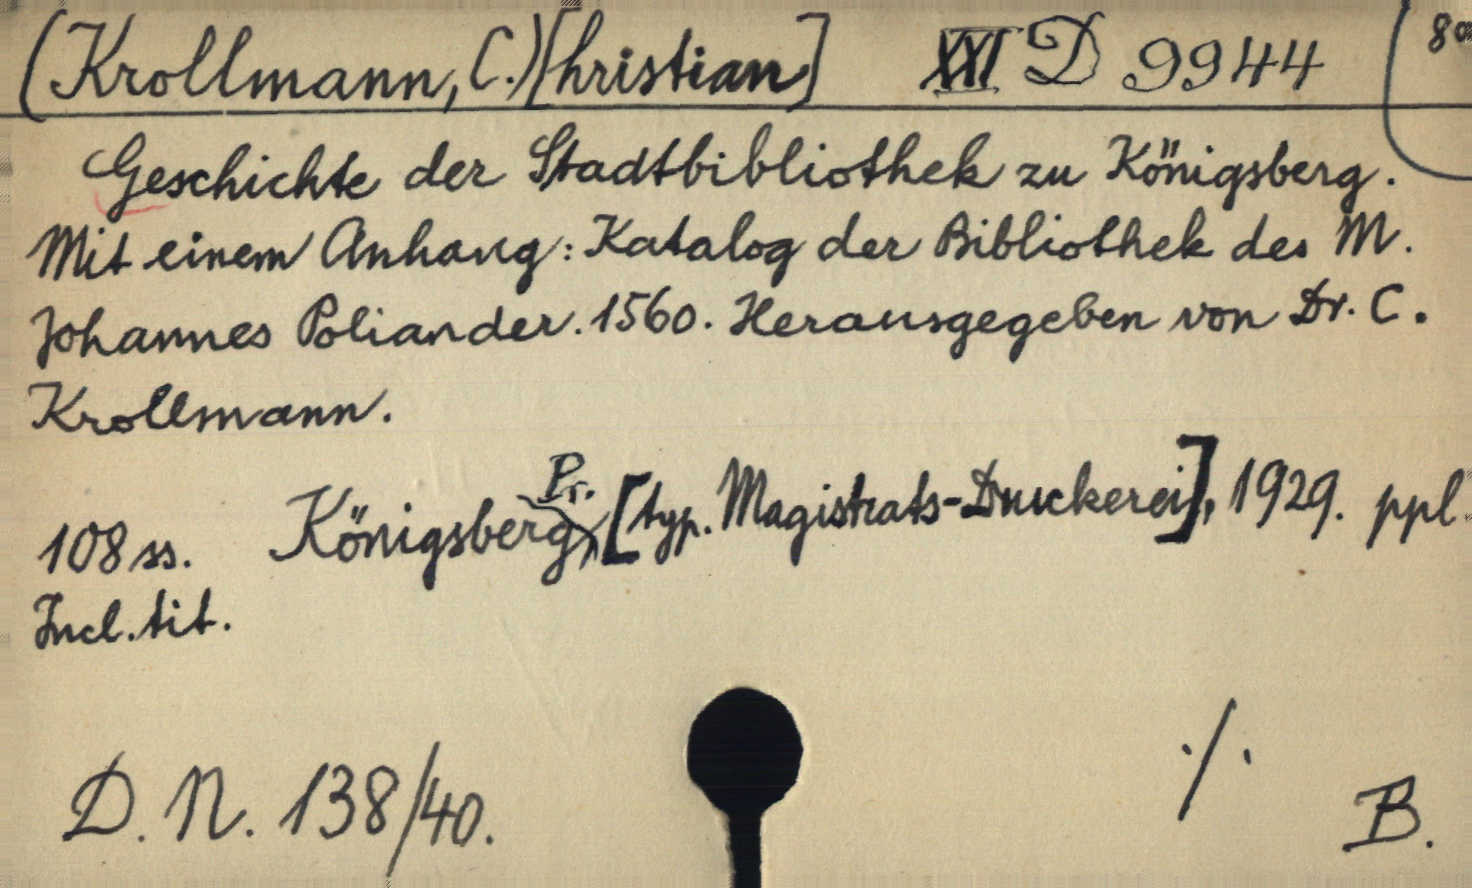 (Krollmann, C.)[hristian] XXI D 9944 8a
Geschichte der Stadtbibliothek zu Königsberg.
Mit einem Anhang: Katalog der Bibliothek des M.
Johannes Poliander. 1560. Herausgegeben von Dr. C.
Krollmann.
108 ss. Königsberg Pr., [typ. Magistrats-Druckerei], 1929. ppl.
Incl. tit.
D. N. 138/40. ·/·
B.